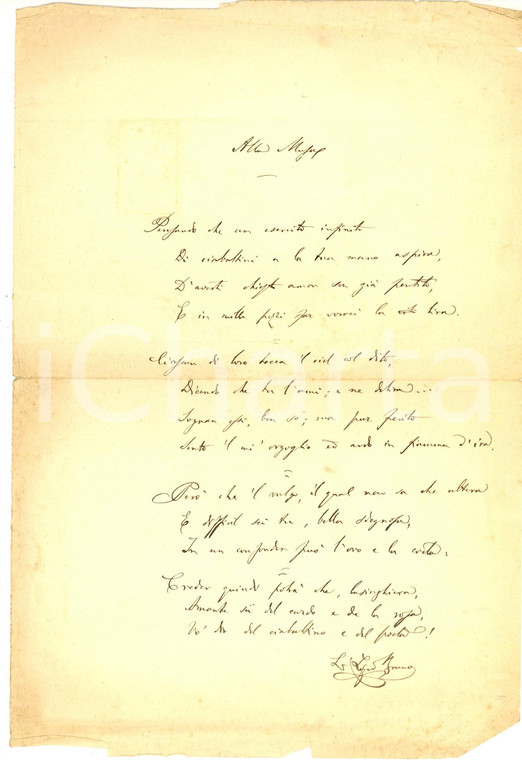 Alla Musa
Pensando che un esercito infinito
Di ciabattini a la tua mano aspira,
D'averti chiesto amor son già pentito,
E in mille pezzi far vorrei la lira.
Ciascun di loro tocca il ciel col dito,
Dicendo che tu l'ami; e ne delira...
Sognan essi, ben so; ma pur ferito
Sento 'l mi' orgoglio ed ardo in fiamma d'ira.
Però che 'l vulgo, il qual non sa che altera
E difficil sei tu, bella sdegnosa,
In un confonder può l'oro e la creta:
Creder quindi potria che, lusinghiera,
Amante sii del cardo e de la rosa,
Vo' dir del ciabattino e del poeta!
iCharta